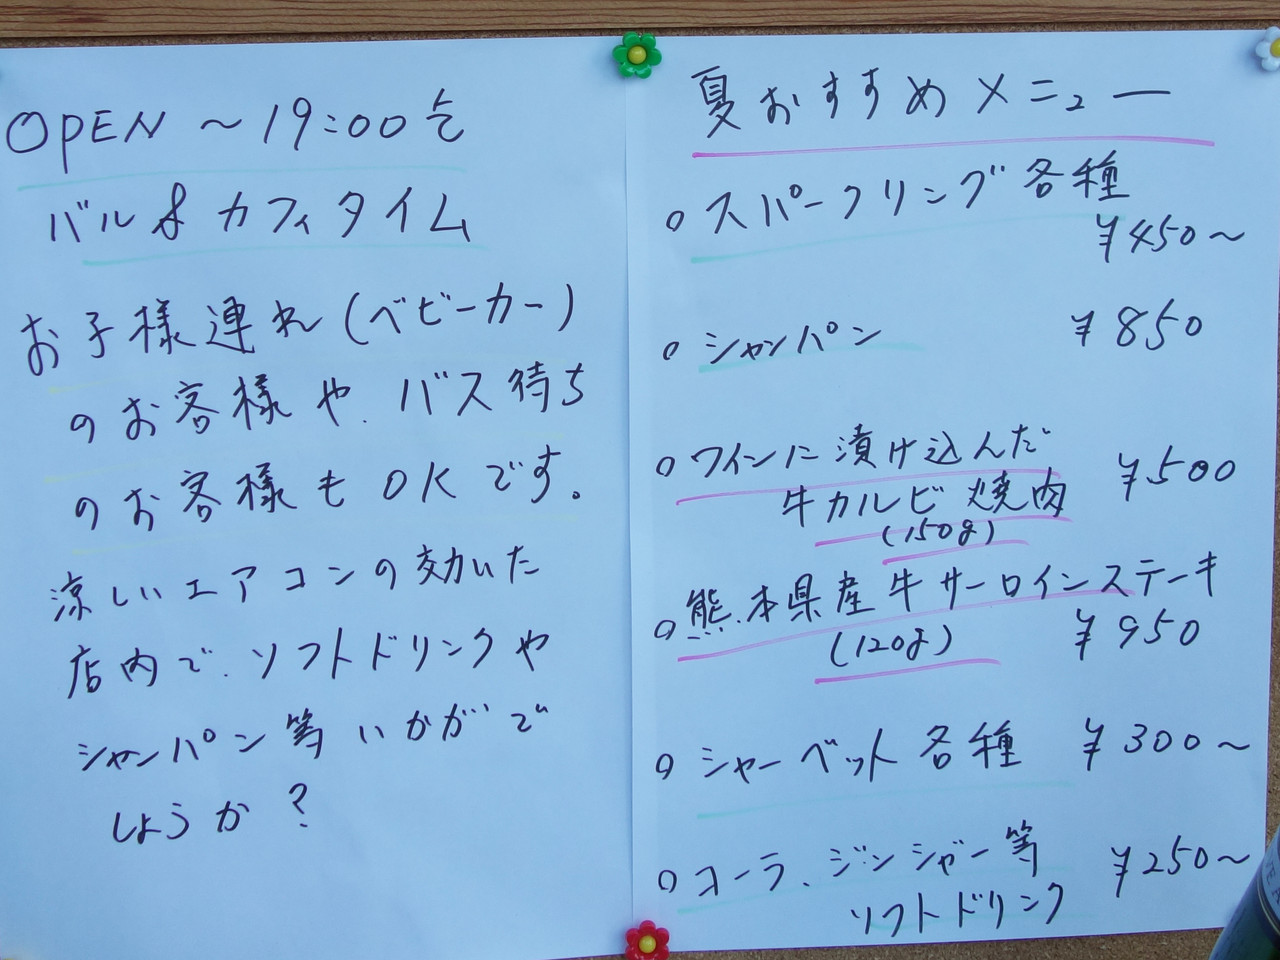 OPEN ～19:00迄
バル&カフィタイム
お子様連れ(ベビーカー)
のお客様や、バス待ち
のお客様もOKです。
涼しいエアコンの効いた
店内で、ソフトドリンクや
シャンパン等いかがで
しょうか?
夏おすすめメニュー
○スパークリング各種
¥450～
○シャンパン ¥850
○ワインに漬け込んだ
牛カルビ焼肉 ¥500
(150g)
○熊本県産牛サーロインステーキ
(120g) ¥950
○シャーベット各種 ¥300～
○コーラ、ジンジャー等
ソフトドリンク ¥250～